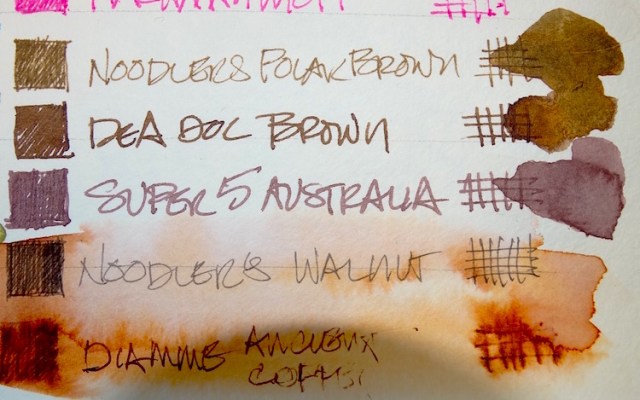 NOODLERS POLAR BROWN
DEA DOC BROWN
SUPER 5 AUSTRALIA
NOODLER'S WALNUT
DIAMINE ANCIENT